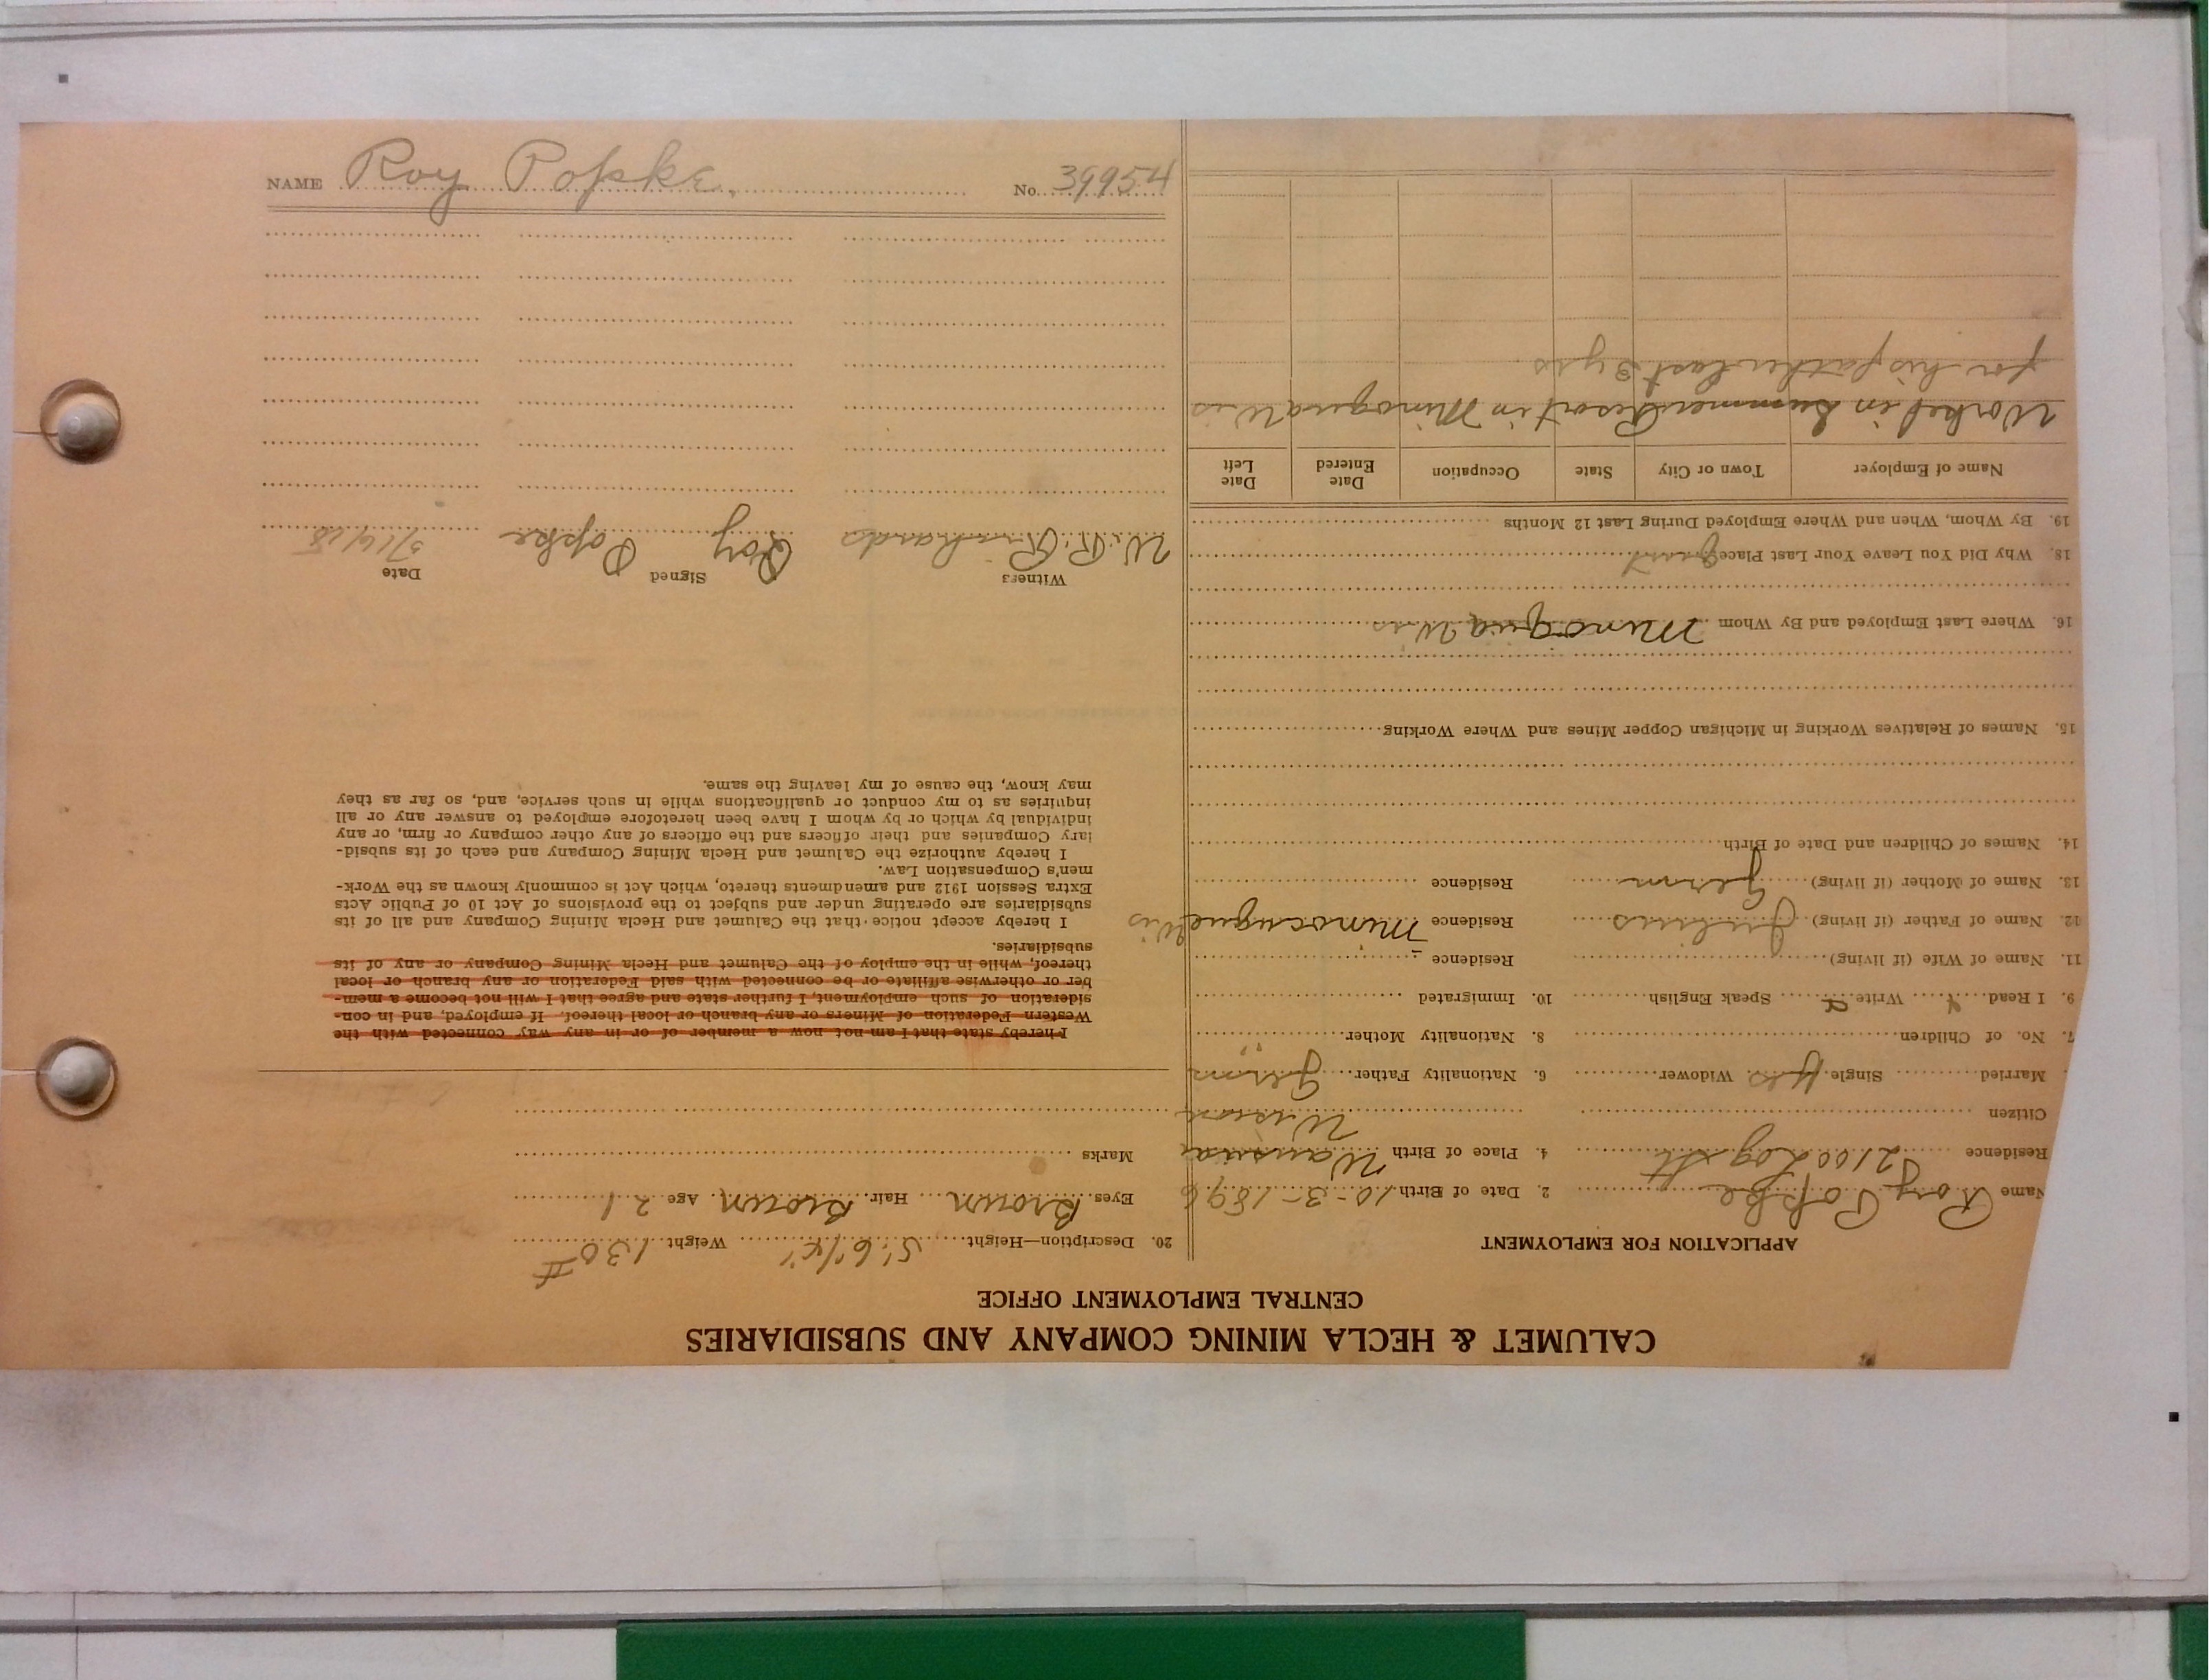 NAME Roy Popke. No. 39954
CALUMET & HECLA MINING COMPANY AND SUBSIDIARIES
CENTRAL EMPLOYMENT OFFICE
APPLICATION FOR EMPLOYMENT
Name Roy Popke 2. Date of Birth 10-3-1896
Residence 2100 Log St 4. Place of Birth Wausau
Citizen Wiscon
Married Single Yes. Widower 6. Nationality Father Germ
7. No. of Children 8. Nationality Mother
9. I Read Y Write Y Speak English 10. Immigrated
11. Name of Wife (if living) Residence
12. Name of Father (if living) Julius Residence Minocque Wis
13. Name of Mother (if living) Germ Residence
14. Names of Children and Date of Birth
15. Names of Relatives Working in Michigan Copper Mines and Where Working
16. Where Last Employed and By Whom Minoqua Wis
18. Why Did You Leave Your Last Place
19. By Whom, When and Where Employed During Last 12 Months
Name of Employer Town or City State Occupation Date Entered Date Left
Worked in Summer Resort in Minoqua Wis
for his father last 3 yrs
20. Description—Height 5' 6 1/4" Weight 130 #
Eyes Brown Hair Brown Age 21
Marks
I hereby state that I am not now a member of or in any way connected with the
Western Federation of Miners or any branch or local thereof. If employed, and in con-
sideration of such employment, I further state and agree that I will not become a mem-
ber or otherwise affiliate or be connected with said Federation or any branch or local
thereof, while in the employ of the Calumet and Hecla Mining Company or any of its
subsidiaries.
I hereby accept notice that the Calumet and Hecla Mining Company and all of its
subsidiaries are operating under and subject to the provisions of Act 10 of Public Acts
Extra Session 1912 and amendments thereto, which Act is commonly known as the Work-
men's Compensation Law.
I hereby authorize the Calumet and Hecla Mining Company and each of its subsid-
iary Companies and their officers and the officers of any other company or firm, or any
individual by which or by whom I have been heretofore employed to answer any or all
inquiries as to my conduct or qualifications while in such service, and, so far as they
may know, the cause of my leaving the same.
Witness Signed Date
W. R. Richards Roy Popke 5/14/18